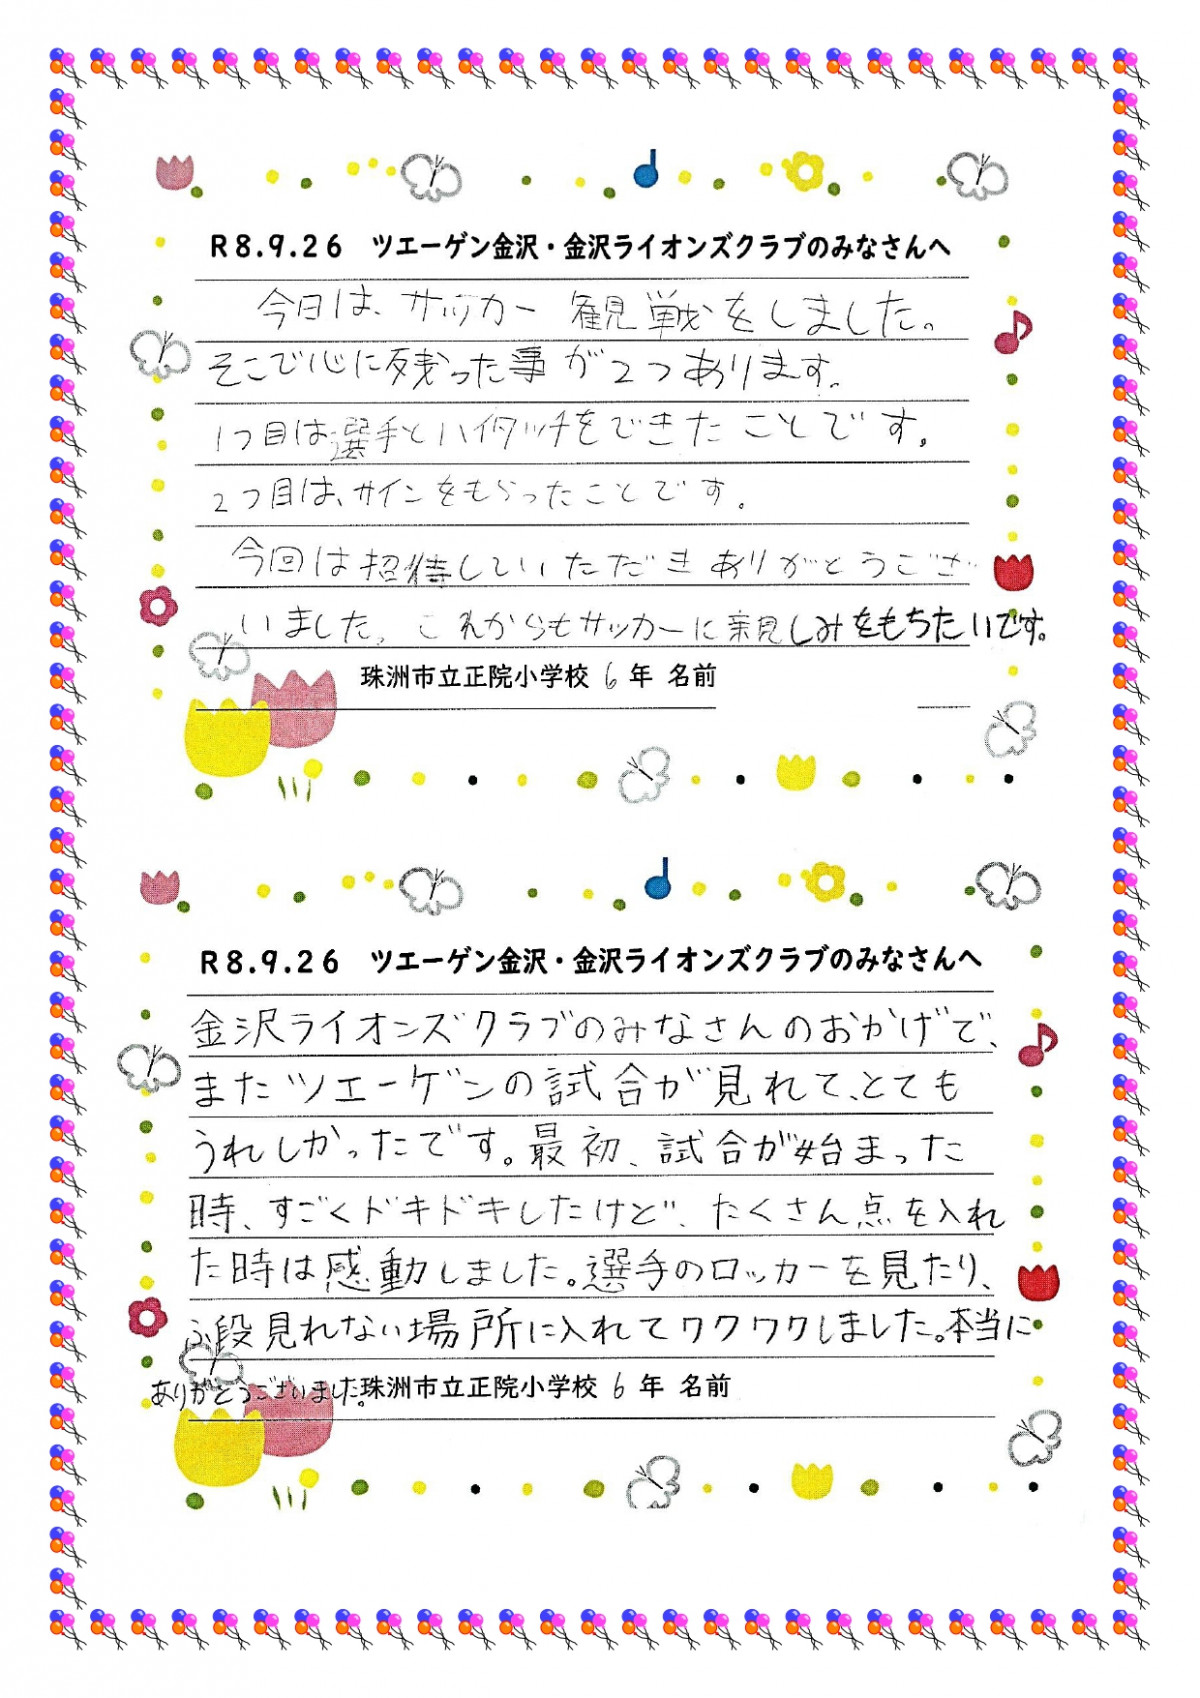 R8.9.26 ツエーゲン金沢・金沢ライオンズクラブのみなさんへ
今日は、サッカー観戦をしました。
そこで心に残った事が2つあります。
1つ目は選手とハイタッチをできたことです。
2つ目は、サインをもらったことです。
今回は招待していただきありがとうござ
いました。これからもサッカーに親しみをもちたいです。
珠洲市立正院小学校 6年 名前
R8.9.26 ツエーゲン金沢・金沢ライオンズクラブのみなさんへ
金沢ライオンズクラブのみなさんのおかげで、
またツエーゲンの試合が見れて、とても
うれしかったです。最初、試合が始まった
時、すごくドキドキしたけど、たくさん点を入れ
た時は感動しました。選手のロッカーを見たり、
ふ段見れない場所に入れてワクワクしました。本当に
ありがとうございました。珠洲市立正院小学校 6年 名前